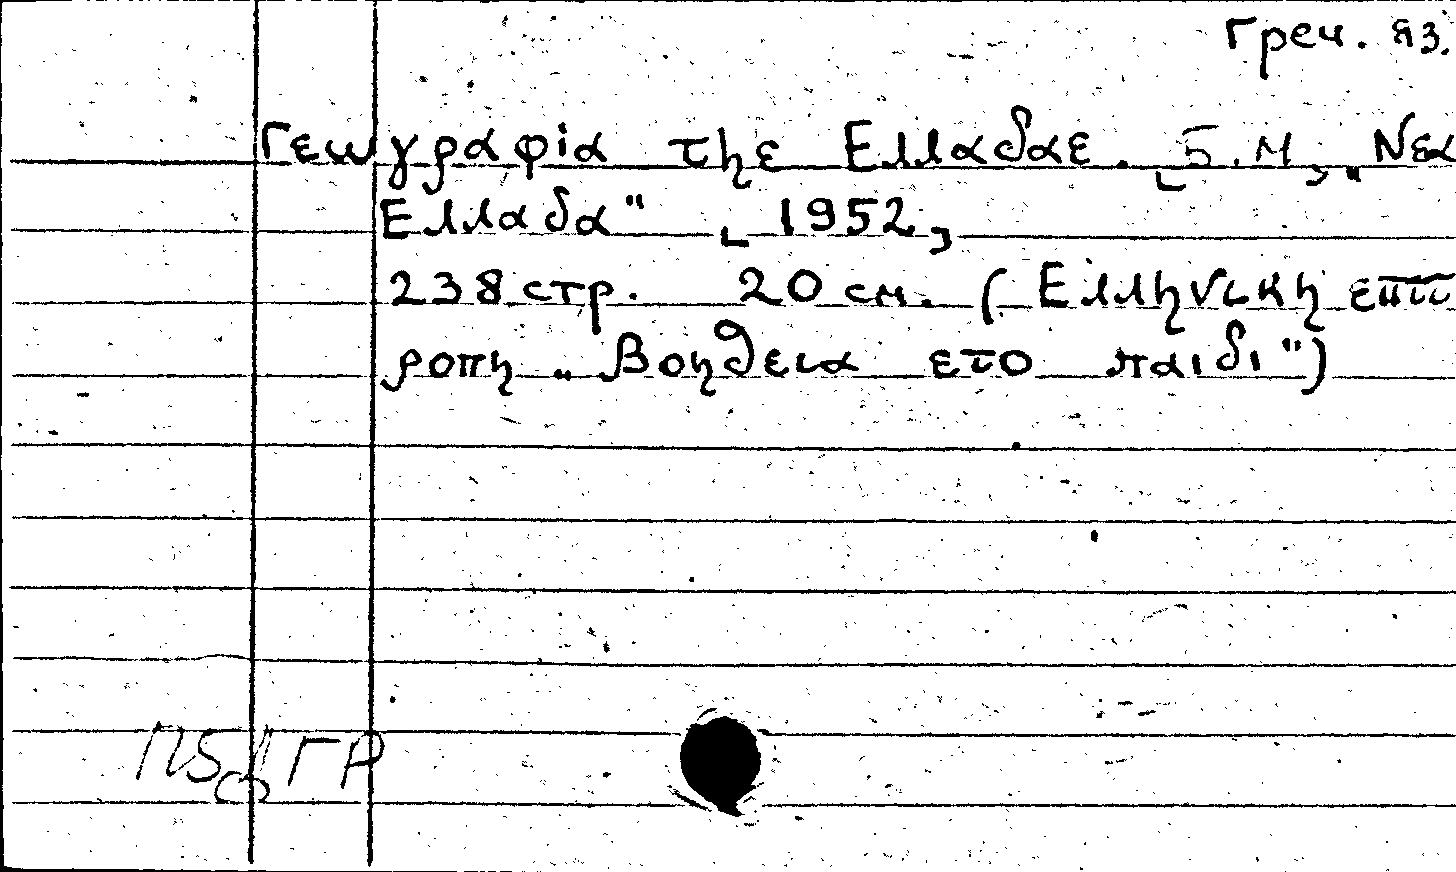 Греч. яз.
Γεωγραφία τηε Ελλαδαε. [Б.м.], „Νεα
Ελλαδα" [1952]
238 стр. 20 см. (Ελληνικη επιτ
ροπη „Βοηθεια ετο παιδι")